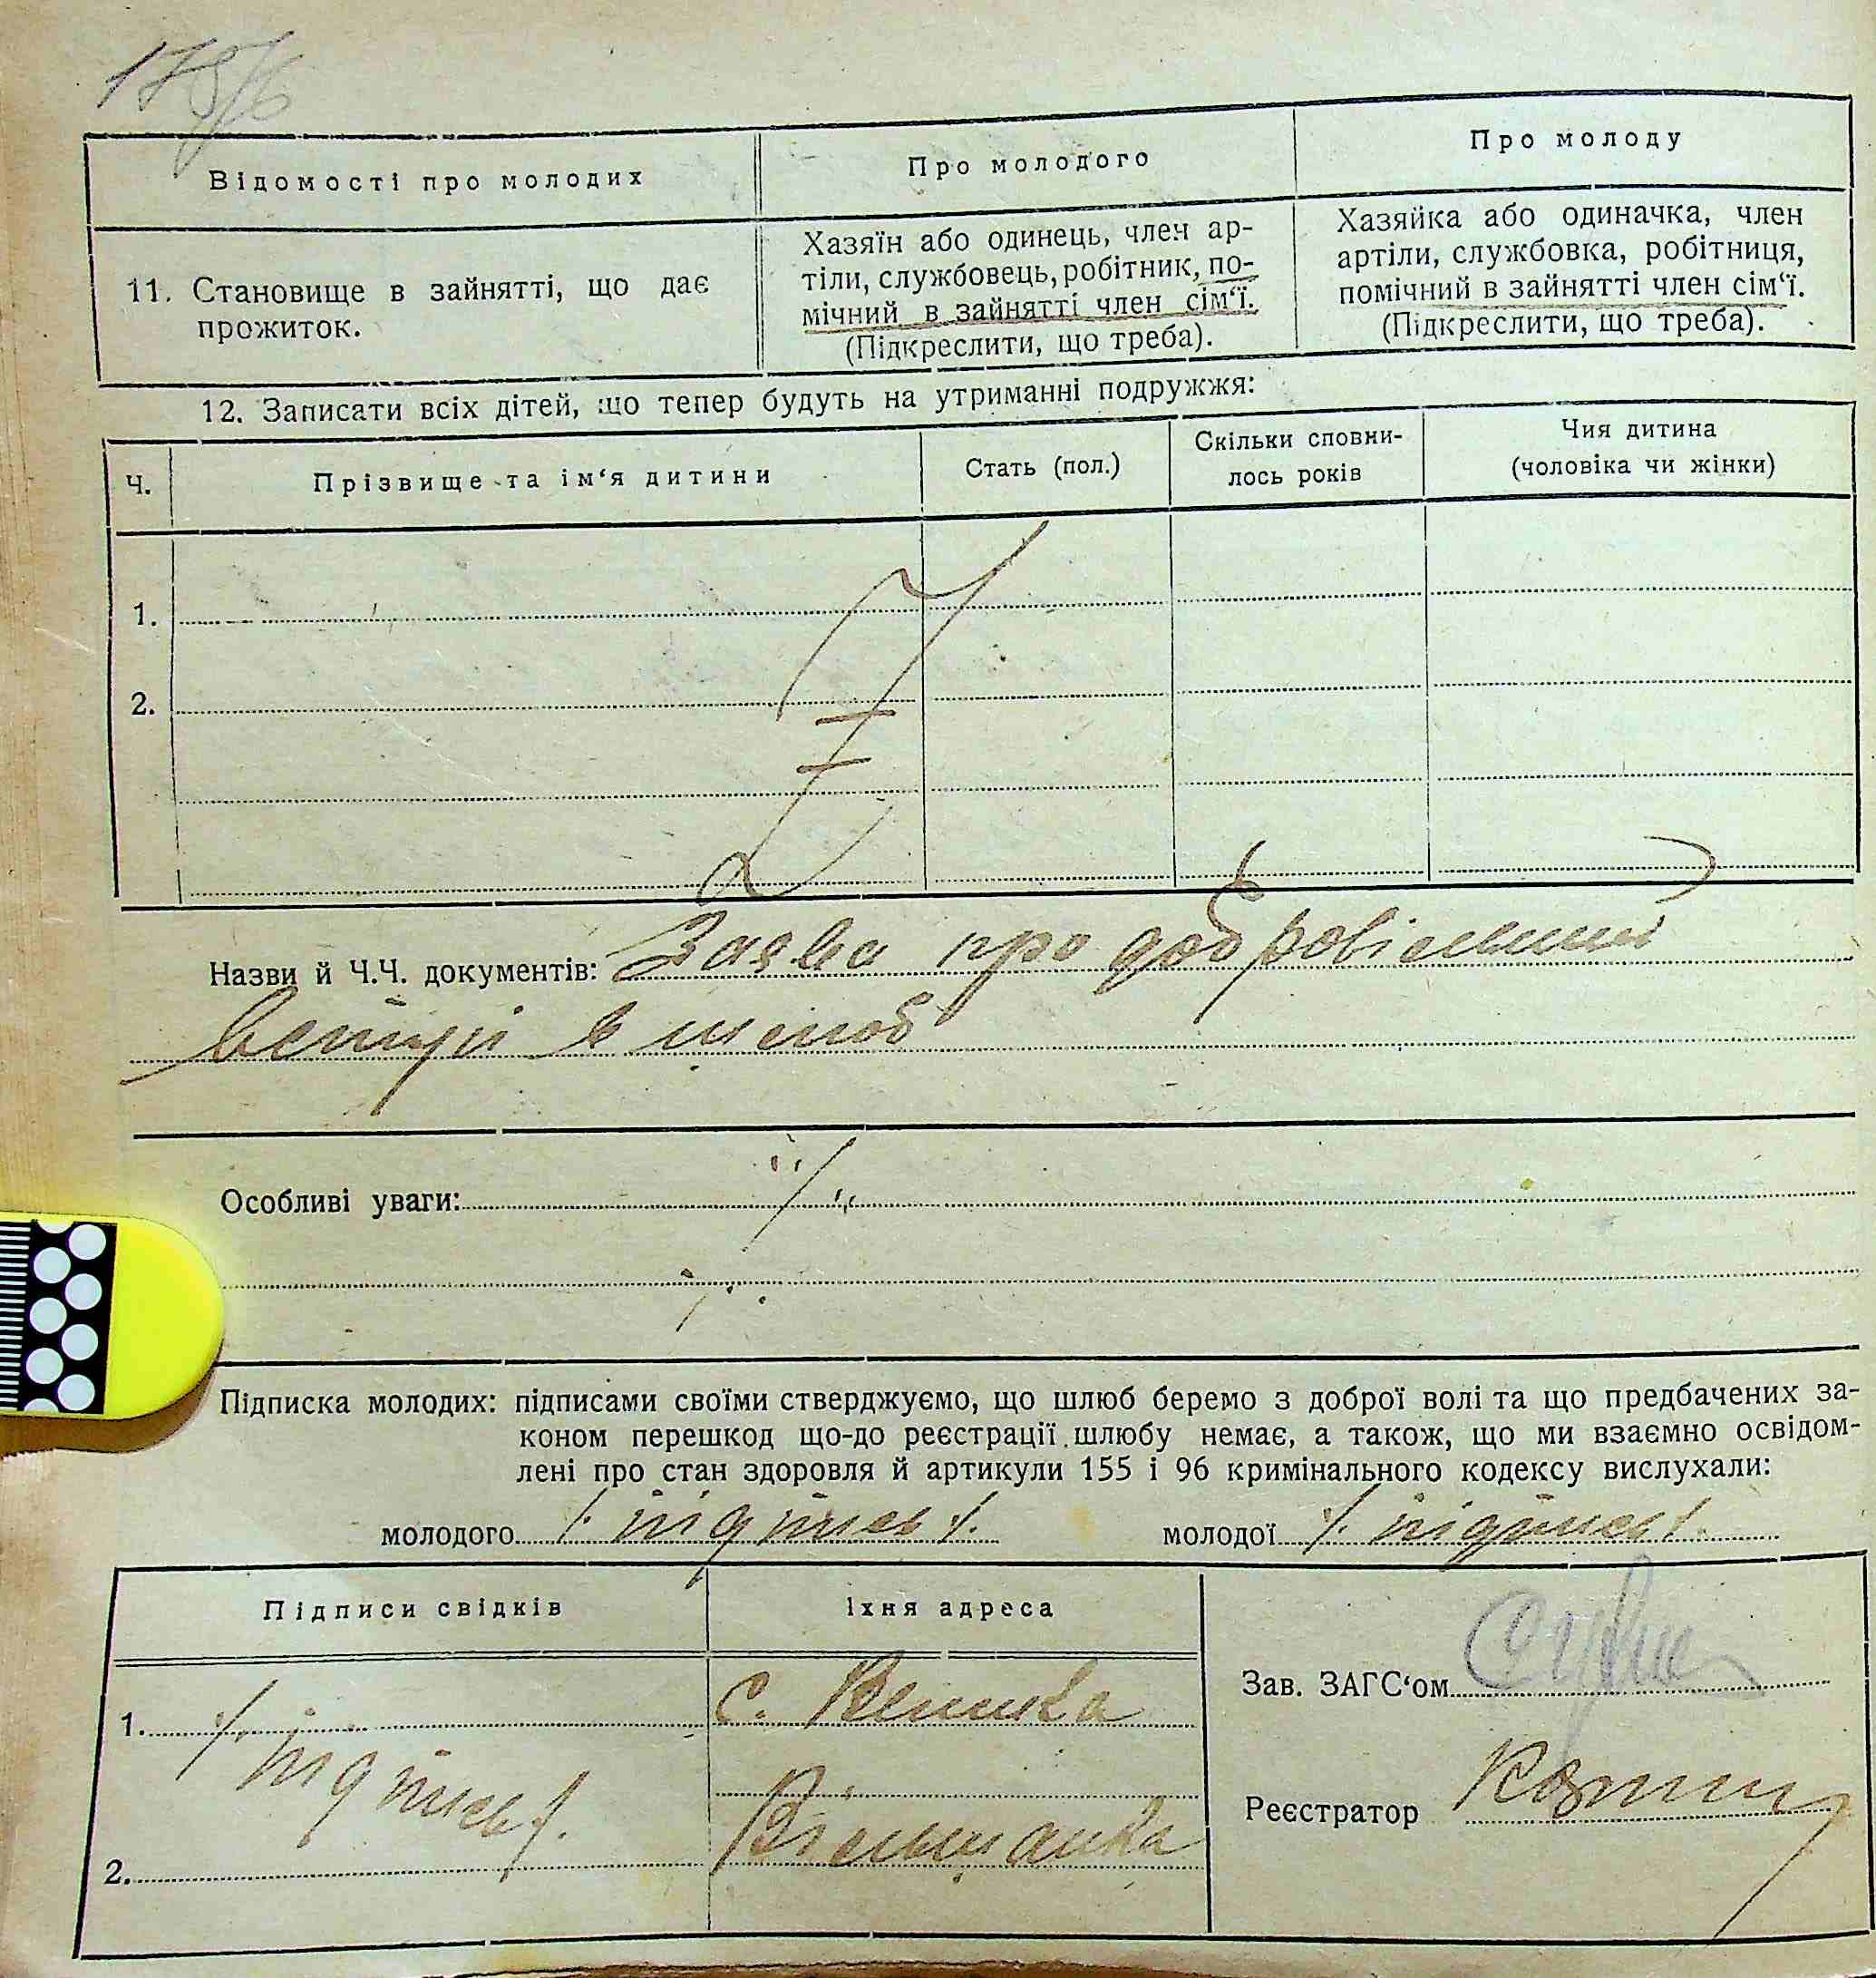 Відомості про молодих
Про молодого
Про молоду
11. Становище в зайнятті, що дає
прожиток.
Хазяїн або одинець, член ар-
тіли, службовець, робітник, по-
мічний в зайнятті член сім‘ї.
(Підкреслити, що треба).
Хазяйка або одиначка, член
артіли, службовка, робітниця,
помічний в зайнятті член сім‘ї.
(Підкреслити, що треба).
12. Записати всіх дітей, що тепер будуть на утриманні подружжя:
Ч.
Прізвище та ім‘я дитини
Стать (пол.)
Скільки сповни-
лось років
Чия дитина
(чоловіка чи жінки)
1.
2.
Назви й Ч.Ч. документів: Заява про добровільний
вступ в шлюб
Особливі уваги:
Підписка молодих: підписами своїми стверджуємо, що шлюб беремо з доброї волі та що предбачених за-
коном перешкод що-до реєстрації шлюбу немає, а також, що ми взаємно освідом-
лені про стан здоровля й артикули 155 і 96 кримінального кодексу вислухали:
молодого /. підпись /.
молодої /. підпись /.
Підписи свідків
Їхня адреса
1. /. підпись /.
2.
с. Велика
Вільшанка
Зав. ЗАГС‘ом
Реєстратор